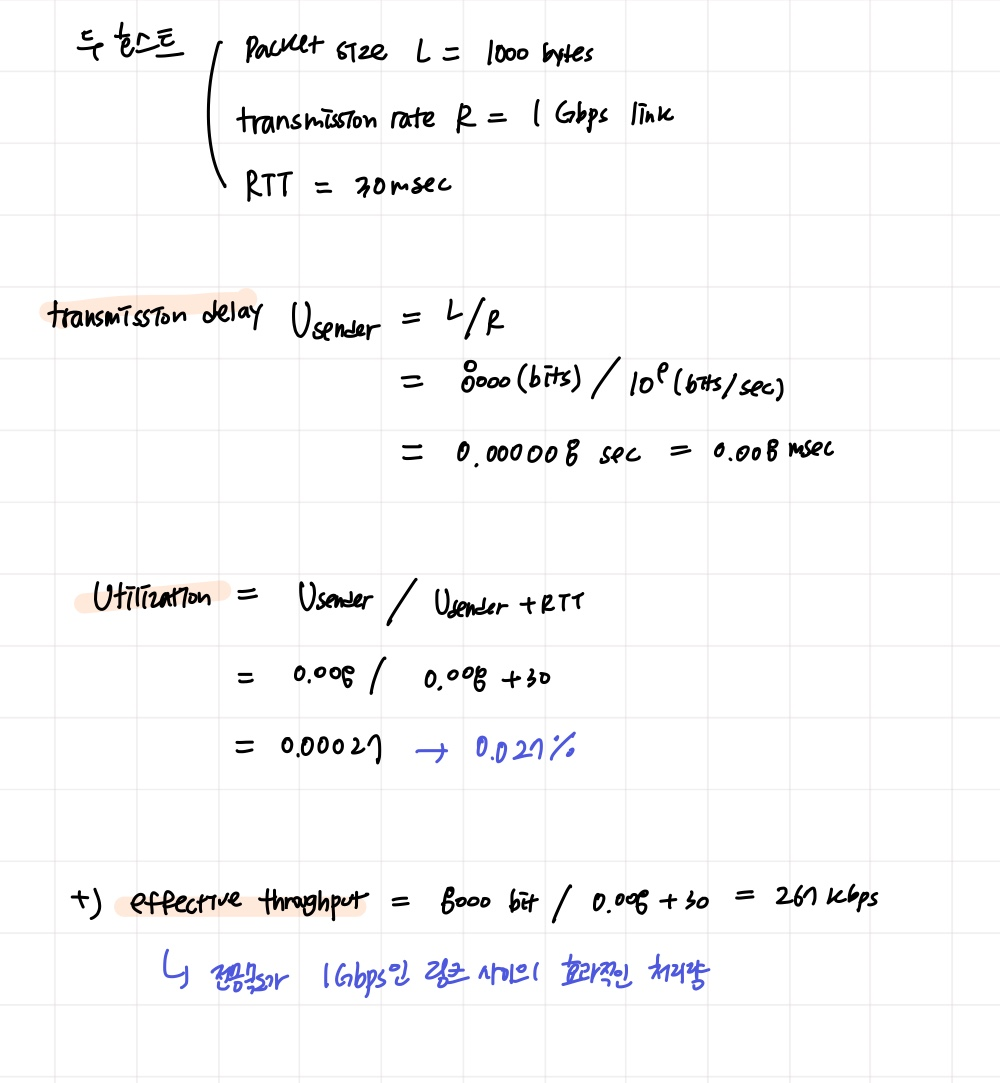 두 호스트 Packet size L = 1000 bytes
transmission rate R = 1 Gbps link
RTT = 30msec
transmission delay Usender = L/R
= 8000(bits) / 10⁹(bits/sec)
= 0.000008 sec = 0.008 msec
Utilization = Usender / Usender + RTT
= 0.008 / 0.008 + 30
= 0.00027 → 0.027%
+) effective throghput = 8000 bit / 0.008 + 30 = 267 kbps
↳ 전송속도가 1Gbps인 링크 사이의 효과적인 처리량